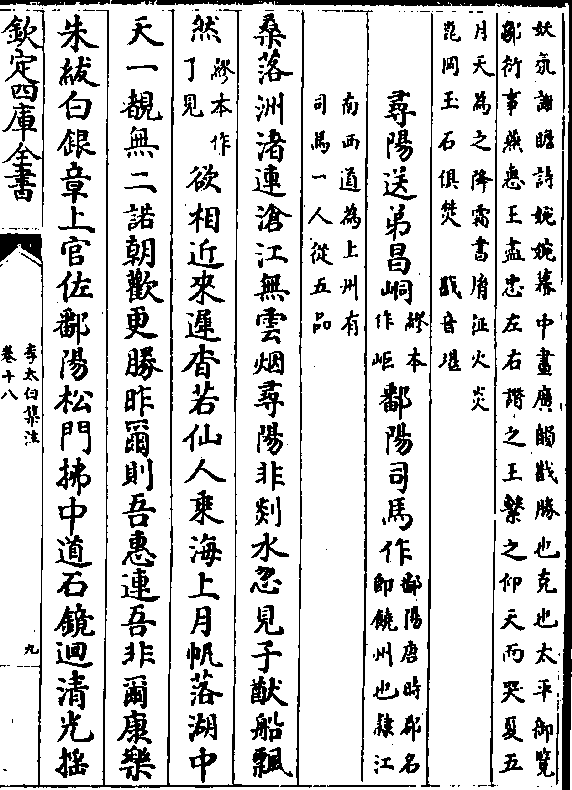 妖氛謝瞻詩婉婉幕中畫廣韻戡勝也克也太平御覽
鄒衍事燕惠王盡忠左右譖之王繫之仰天而哭夏五
月天為之降霜書胤征火炎
崑岡玉石俱焚　戡音堪
尋陽送弟昌峒繆本作岠鄱陽司馬作鄱陽唐時郡名即饒州也隸江
南西道為上州有
司馬一人從五品
桑落洲渚連滄江無雲烟尋陽非剡水忽見子猷船飄
然繆本作了見欲相近來遲杳若仙人乘海上月帆落湖中
天一覩無二諾朝歡更勝昨爾則吾惠連吾非爾康樂
朱紱白銀章上官佐鄱陽松門拂中道石鏡迴清光搖
欽定四庫全書
李太白集注
卷十八
九